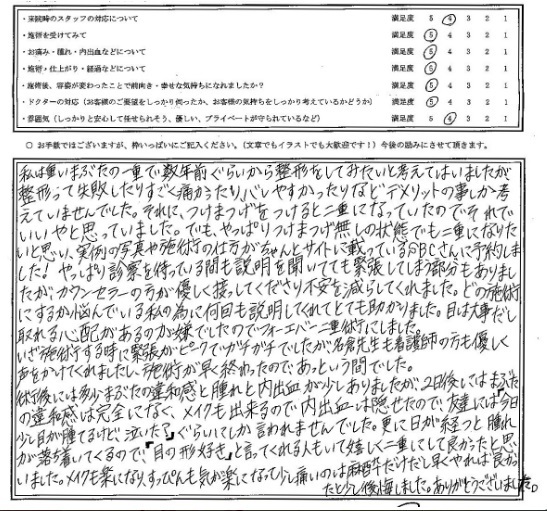 ・来院時のスタッフの対応について 満足度 5 4 3 2 1
・施術を受けてみて 満足度 5 4 3 2 1
・お痛み・腫れ・内出血などについて 満足度 5 4 3 2 1
・施術・仕上がり・経過などについて 満足度 5 4 3 2 1
・施術後、容姿が変わったことで前向き・幸せな気持ちになれましたか？ 満足度 5 4 3 2 1
・ドクターの対応（お客様のご要望をしっかり伺ったか、お客様の気持ちをしっかり考えているかどうか） 満足度 5 4 3 2 1
・雰囲気（しっかりと安心して任せられそう、優しい、プライベートが守られているなど） 満足度 5 4 3 2 1
○ お手数ではございますが、枠いっぱいにご記入ください。（文章でもイラストでも大歓迎です！）今後の励みにさせて頂きます。
私は重いまぶたの一重で数年前ぐらいから整形をしてみたいと考えてはいましたが
整形って失敗したりすごく痛かったり、バレやすかったりなどデメリットの事しか考
えていませんでした。それに、つけまつげをつけると二重になっていたのでそれで
いいやと思っていました。でも、やっぱりつけまつげ無しの状態でも二重になりた
いと思い、実例の写真や施術の仕方がちゃんとサイトに載っているSBCさんに予約しま
した！やっぱり診察を待っている間も説明を聞いてても緊張してしまう部分もありまし
たが、カウンセラーの方が優しく接してくださり不安を減らしてくれました。どの施術
にするか悩んでいる私の為に何回も説明してくれてとても助かりました。目は大事だし
取れる心配があるのが嫌でしたのでフォーエバー二重術にしました。
いざ施術する時に緊張がピークでガチガチでしたが名倉先生も看護師の方も優しく
声をかけてくれましたし、施術が早く終わったのであっという間でした。
術後には多少まぶたの違和感と腫れと内出血が少しありましたが、2日後にはまぶた
の違和感は完全になく、メイクも出来るので内出血は隠せたので、友達には「今日
少し目が腫てるけど、泣いた？」ぐらいにしか言われませんでした。更に日が経つと腫れ
が落ち着いてくるので、「目の形好き」と言ってくれる人もいて嬉しく二重にして良かったと思
いました。メイクも楽になり、すっぴんも気が楽になって少し痛いのは麻酔だけだし早くやれば良かっ
たと少し後悔しました。ありがとうございました。